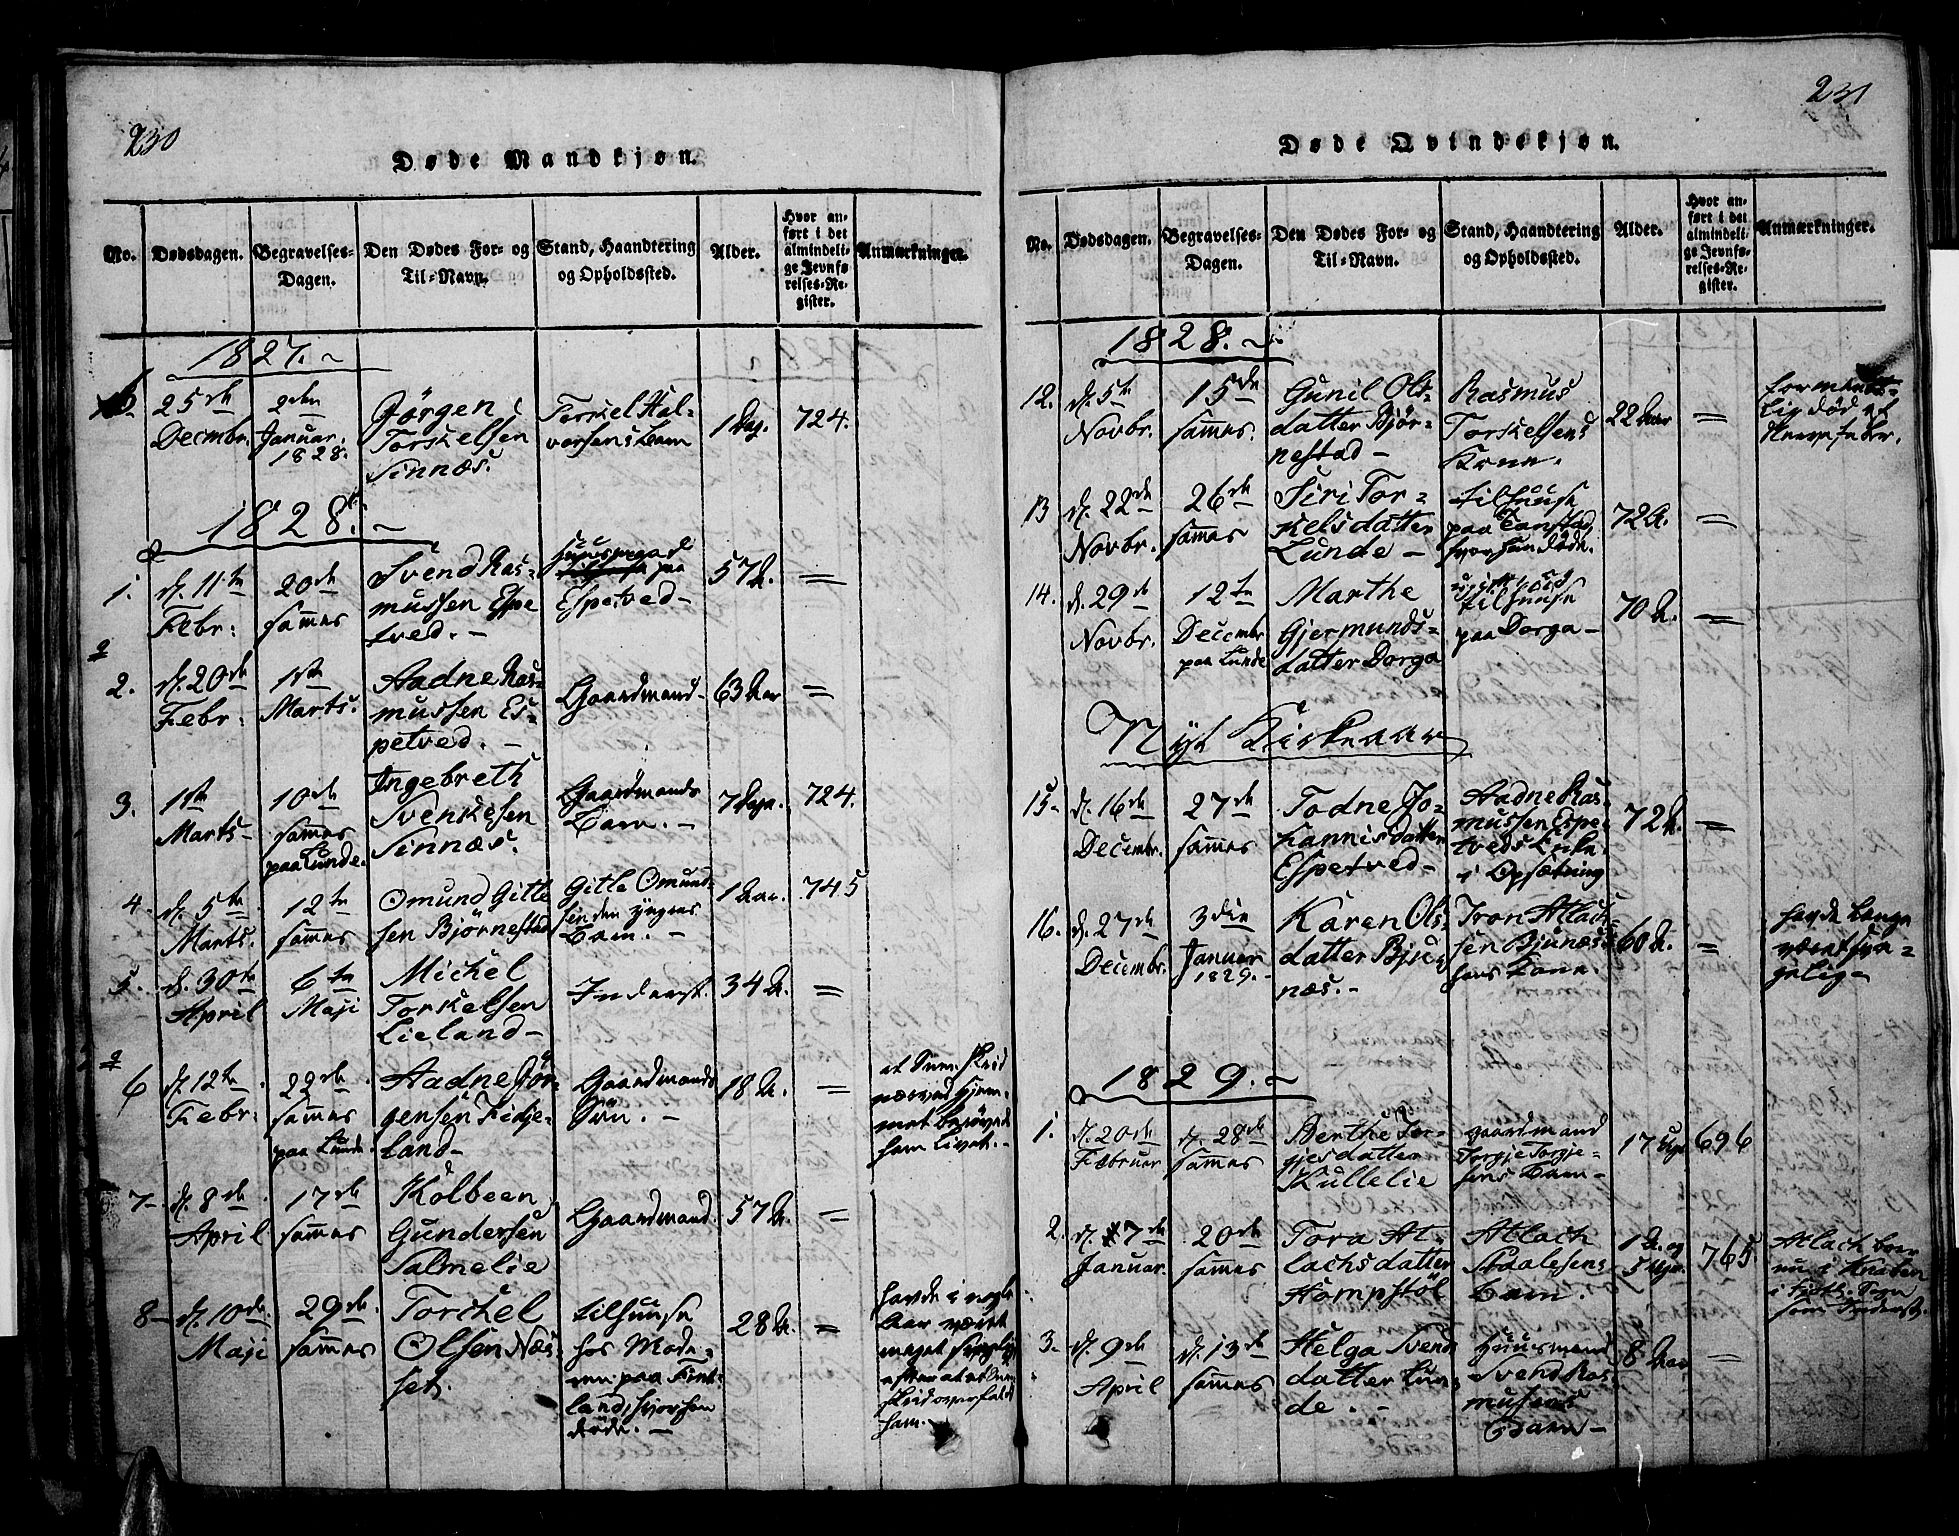 230
Døde Mandkjøn.
No.
Dødsdagen.
Begravelses-
Dagen.
Den Dødes For- og
Til-Navn.
Stand, Haandtering
og Opholdssted.
Alder.
Hvor an-
ført i det
almindeli-
ge Jevnfø-
relses-Re-
gister.
Anmærkninger.
1827.
25de
Decmbr.
2den
Januar.
1828.
Jørgen
Torkelsen
Sinnæs.
Terkel Hal-
vorsens Barn
1 Dag.
724.
1828.
1.
d. 11te
Febr:
20de
sammes
Svend Ras-
mussen Espe
tved.
Huusmand
paa
Espetved
57 A.
=
2.
d. 20de
Febr:
1ste
Marts.
Aadne Ras-
mussen Es-
petved.
Gaardmand
63 Aar
=
3.
1ste
Marts
10de
sammes
paa Lunde.
Ingebreth
Svenkesen
Sinnæs.
Gaardmands
Barn.
7 Dage.
724.
4.
d. 5te
Marts.
12te
sammes
Omund Gitle
sen Bjørnestad
Gitle Omund-
sen den yngres
Barn.
1 Aar.
745
5.
d. 30te
April
6te
Maji
Michel
Torkelsen
Lieland
Inderst.
34 A.
=
6
d. 12te
Febr:
22de
sammes
paa Lunde
Aadne Jør-
gensen Fidje-
land
Gaardmands
Søn.
18 A.
=
at Snee Skred
nærved Hjem-
met berøvede
ham Livet.
7
d. 8de
April
17de
sammes
Kolbeen
Gundersen
Salmelie
Gaardmand.
57 A.
=
8
d. 10de
Maji
29de
sammes
Torkel
Olsen Næs-
set.
tilhuuse
hos Mode-
ren paa Fint-
land, hvor han
døde.
28 A.
=
havde i nogle
Aar været
meget svagelig
efter at et Snee
skred overfaldt
ham.
231
Døde Qvindekjøn.
No.
Dødsdagen.
Begravelses-
Dagen.
Den Dødes For- og
Til-Navn.
Stand, Haandtering
og Opholdssted.
Alder.
Hvor an-
ført i det
almindeli-
ge Jevnfø-
relses-Re-
gister.
Anmærkninger.
1828.
12.
d. 5te
Novbr.
15de
sammes.
Gunil Ols-
datter Bjør-
nestad
Rasmus
Torkelsens
Kone.
22 Aar
=
formeent-
lig død af
Nervefeber.
13
d. 22de
Novbr.
26de
sammes
Siri Tor-
kelsdatter
Lunde
tilhuuse
paa Tonstad,
hvor hun døde.
72 A.
=
14.
d. 29de
Novbr.
12te
Decembr
paa Lunde
Marthe
Gjermunds-
datter Dorga
tilhuuse
paa Dorga
70 A.
=
Nyt Kirkeaar
15
d. 16de
Decembr.
27de
sammes
Todne Jo-
hannisdatter
Espetved
Aadne Ras-
mussen Espe-
tveds Enke
i Opsætning
72 A.
=
16.
d. 27de
Decembr.
3die
Januar
1829.
Karen Ols-
datter Bju-
næs.
Tron Atlach-
sen Bjunæs
hans Kone.
60 A.
=
havde længe
været sva-
gelig
1829.
1.
d. 20de
Februar
d. 28de
sammes
Berthe Tor-
gjesdatter
Kullelie
gaardmand
Torgje Torgje-
sens Barn
17 Uger
696
2.
d. 7de
Januar.
20de
sammes
Tora At-
lachsdatter
Hompstøl
Atlach
Staalesens
Barn.
1 A. og
5 Uger.
765
Atlach boer
nu i Knaben
i Fjotl. Sogn
som Inderst.
3.
d. 9de
April
d. 13de
sammes
Helga Svends
datter Lun-
de.
Huusmand
Svend Ras-
musens
Barn
8 Aar
=